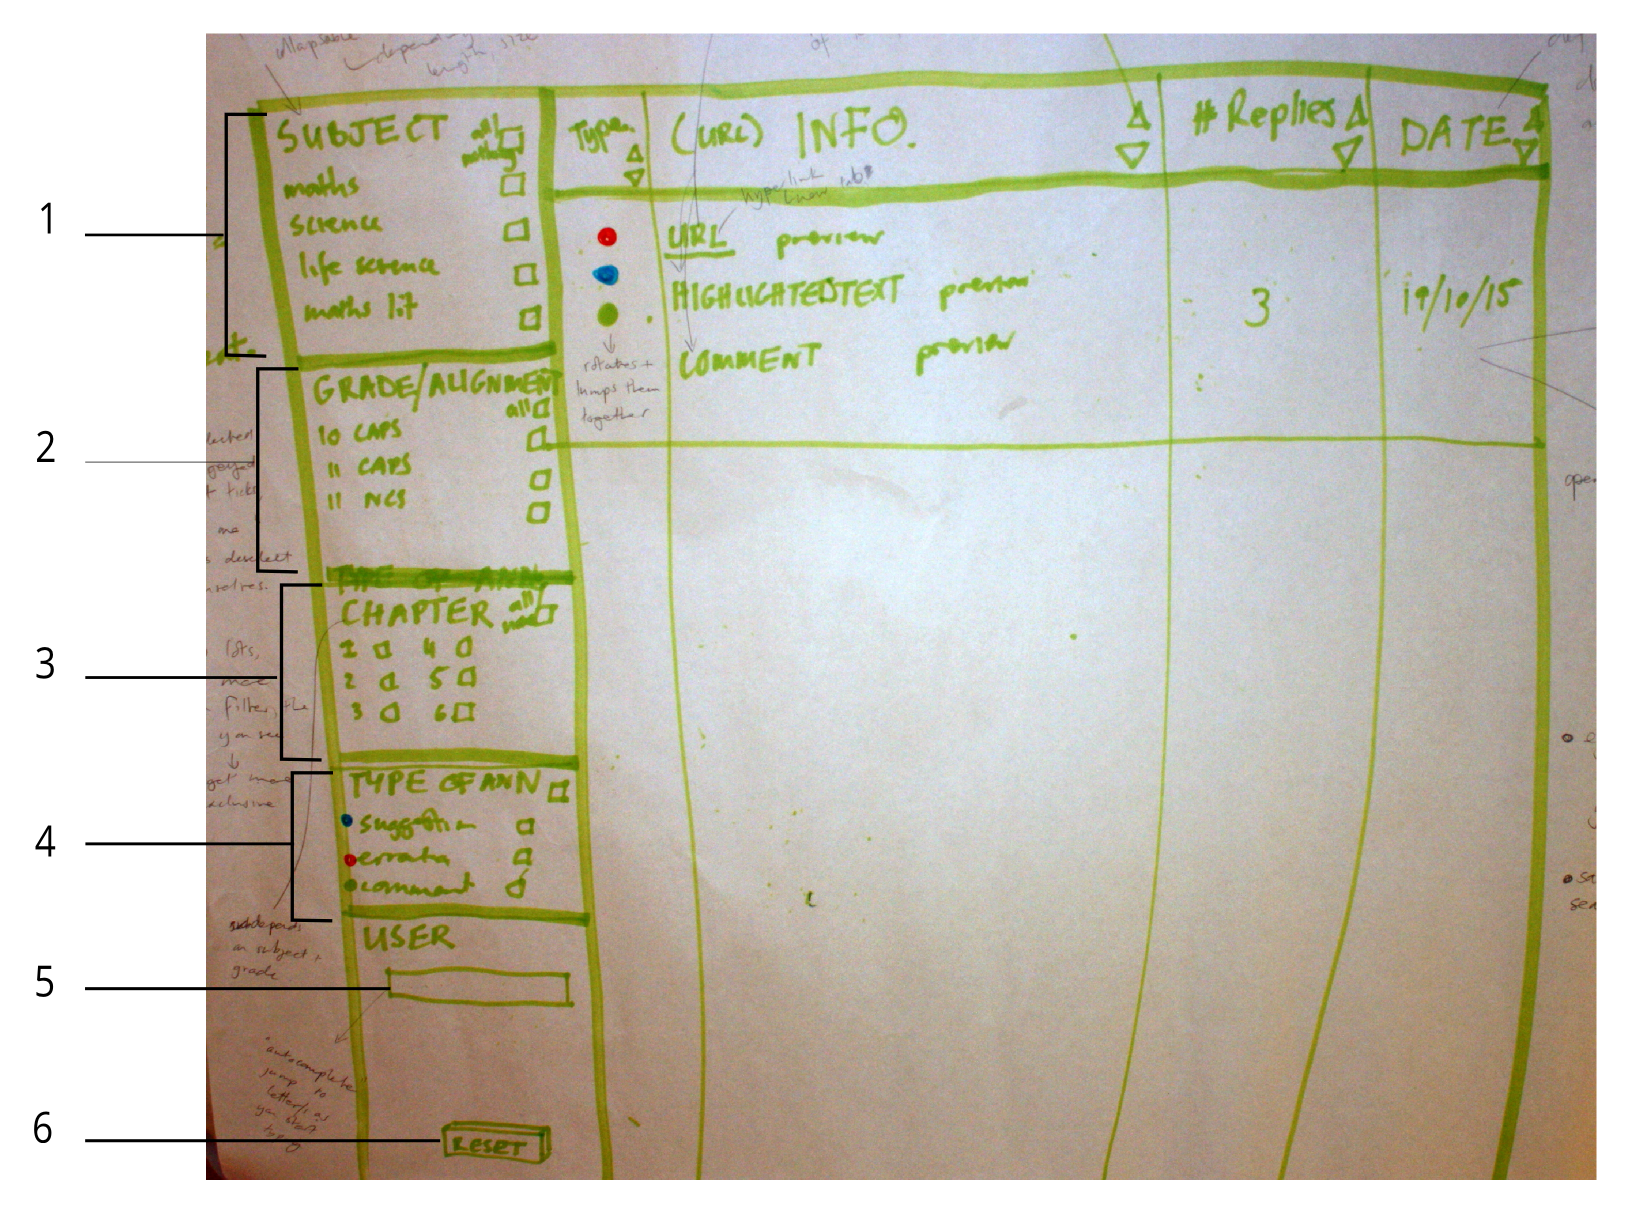 collapsable
depending
length, size
of
1
SUBJECT all/nothing
maths
science
life science
maths lit
2
GRADE/ALIGNMENT
all
10 CAPS
11 CAPS
11 NCS
3
TYPE OF ANN
CHAPTER all/
1 4
2 5
3 6
4
TYPE OF ANN
suggestion
errata
comment
5
USER
6
RESET
Type
(URL) INFO.
# Replies
DATE
hyperlink
(new tab)
URL preview
HIGHLIGHTEDTEXT preview
COMMENT preview
3
19/10/15
rotates +
lumps them
together
me
deselect
lots,
filter, the
you see
get more
exclusive
depends
on subject +
grade
"autocomplete"
jump to
letter/s as
you start
typing